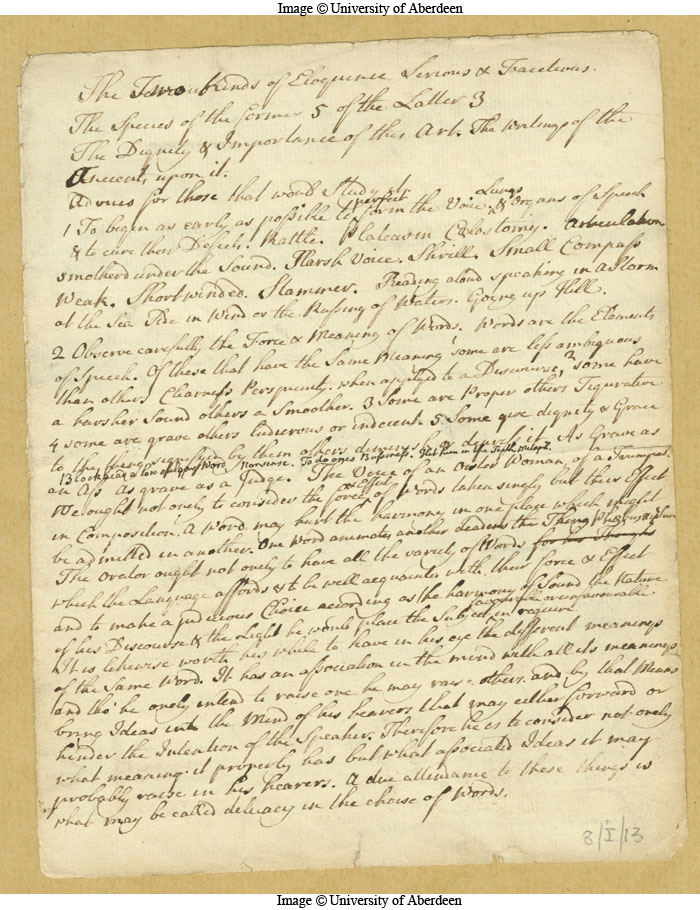 Image © University of Aberdeen
The Two Kinds of Eloquence Serious & Facetious.
The Species of the former 5 of the Latter 3
The Dignity & Importance of this Art. The Writings of the
Ancients upon it.
Advices for those that would Study it.
1 To begin as early as possible to perfect form the Voice, Lungs & Organs of Speech
& to cure their Defects. Rattle. Articulation
smotherd under the Sound. Harsh Voice. Shrill. Small Compass
Weak. Short winded. Stammer. Reading aloud speaking in a Storm
at the Sea Side in Wind or the Rushing of Waters. Going up Hill.
2 Observe carefully the Force & Meaning of Words. Words are the Elements
of Speech. Of these that have the Same Meaning some are less ambiguous
than others Clearness Perspicuity. when applyed to a Discourse, 2 Some have
a harsher Sound others a Smoother. 3 Some are Proper others Figurative
4 some are grave others Ludicrous or indecent 5 Some give dignity & Grace
to the thing signified by them others diminish or it. As Grave as
an Ass As grave as a Judge. The Voice of an Woman of a Trumpet.
Word Nonsense. To do ones Business.
We ought not onely to consider the force or Effect of Words taken singly but their Effect
in Composition. A Word may hurt the harmony in one place which might
be admitted in another. One Word animates another deadens the Thing
The Orator ought not onely to have all the variety of Words
which the Language affords & to be well acquainted with their force & Effect
and to make a judicious Choice according as the harmony of Sound the Nature
of his Discourse & the Light he would place the Subject in favourable or unfavourable require.
It is likewise worth his while to have in his eye the different meanings
of the Same Word. It has an association in the mind with all its meanings
and tho' he onely intend to raise one he may raise others. and by that Means
bring Ideas into the Mind of his hearers that may either forward or
hinder the Intention of the Speaker. Therefore he is to consider not onely
what meaning it properly has but what associated Ideas it may
probably raise in his hearers. A due attendance to these things is
what may be called delicacy in the choise of Words.
8/I/13
Image © University of Aberdeen